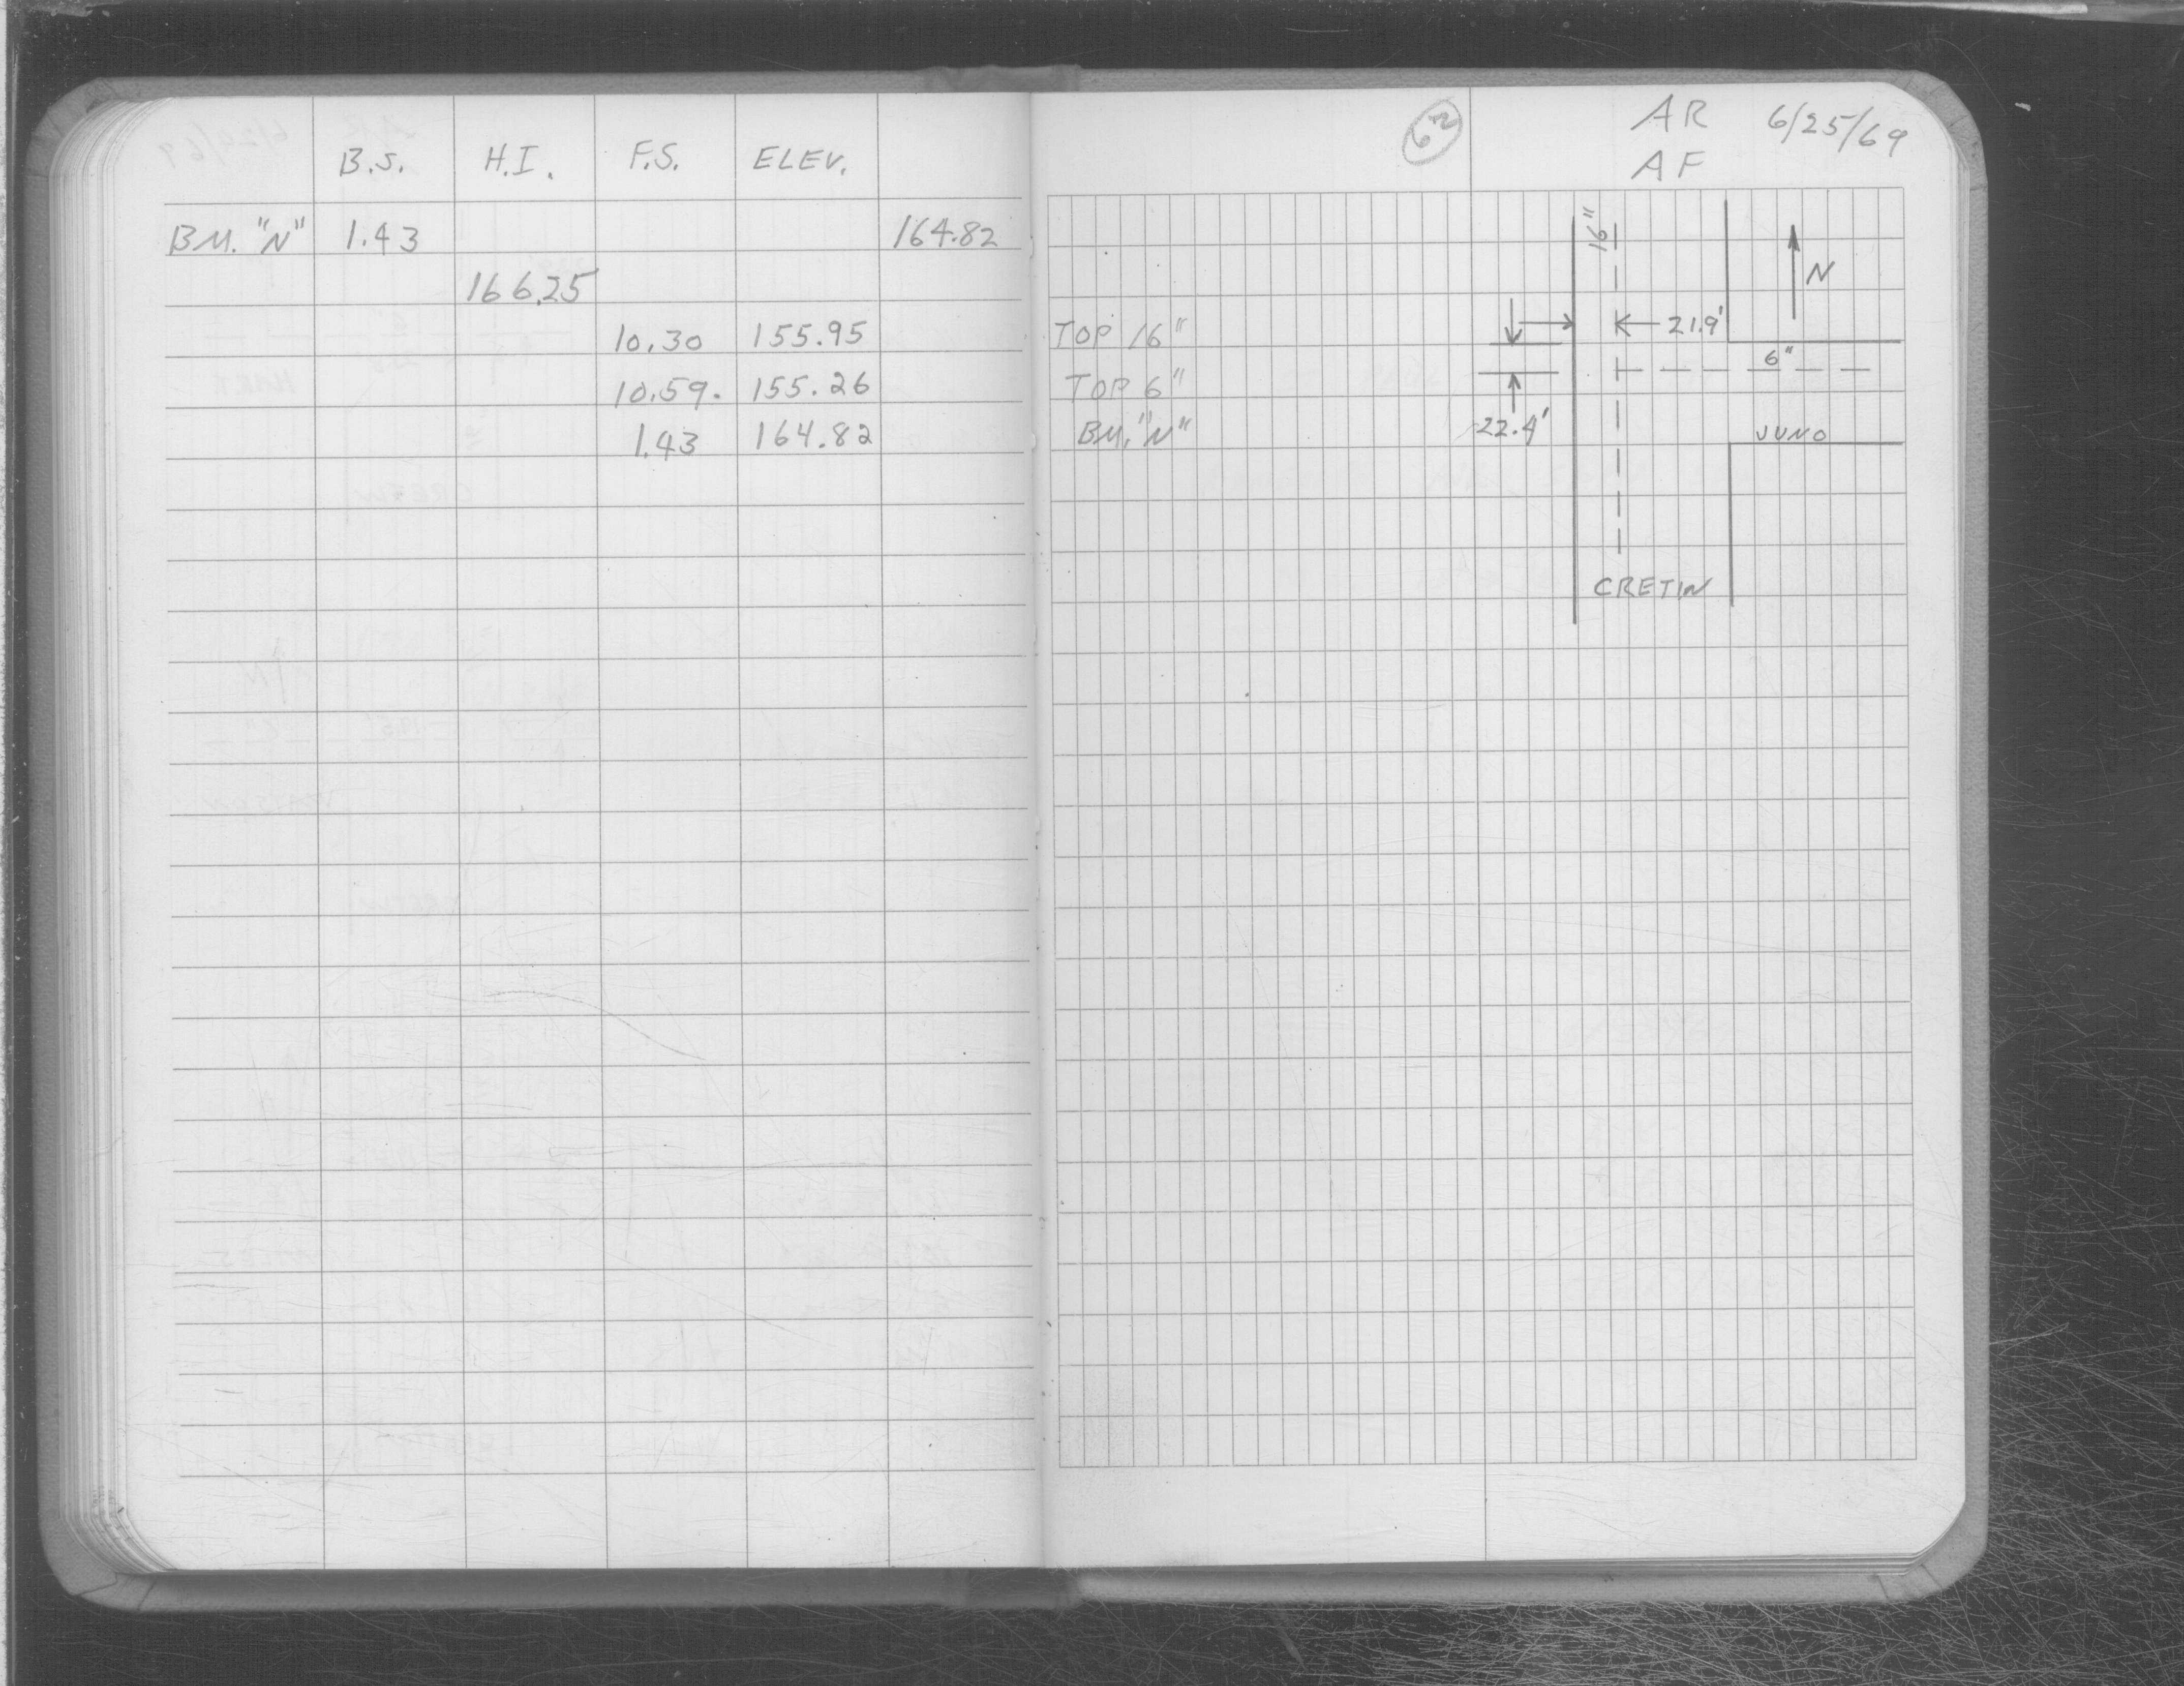 B.S. H.I. F.S. ELEV.
BM. "N" 1.43 164.82
166.25
10.30 155.95
10.59. 155.26
1.43 164.82
62 AR 6/25/69
AF
TOP 16"
TOP 6"
BM. "N"
16"
N
21.9'
6"
22.4'
JUNO
CRETIN